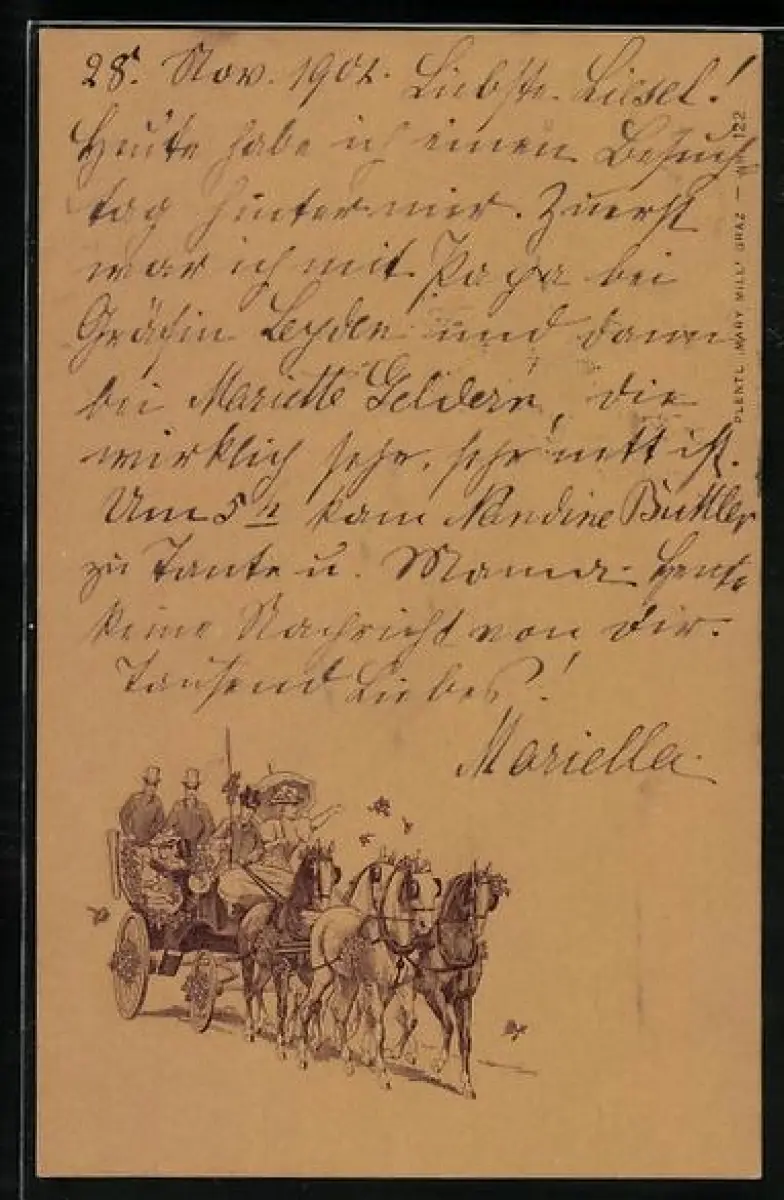 28. Nov. 1901. Liebste Liesel!
Heute habe ich einen Besuch-
tag hinter mir. Zuerst
war ich mit Papa bei
Gräfin Leyden und dann
bei Mariette Geldern, die
wirklich sehr, sehr nett ist.
Um 5 h kam Nandine Buttler
zu Tante u. Mama. Heute
keine Nachricht von dir.
Tausend Liebes!
Mariella.
PLENTL „MARY MILL“ GRAZ — 122